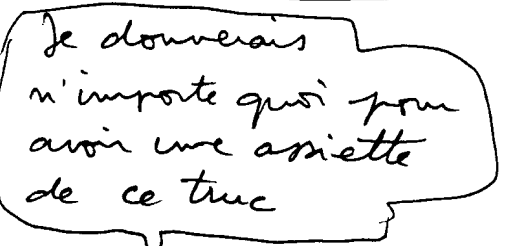 Je donnerais
n'importe quoi pour
avoir une assiette
de ce truc